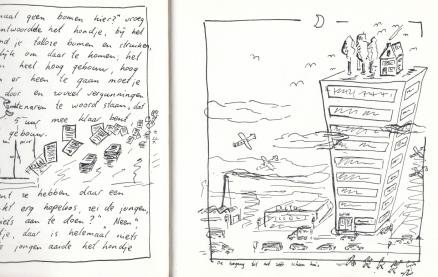 maal geen bomen hier?" vroeg
ntwoordde het hondje, bij het
nd je talloze bomen en struiken,
lijk om daar te komen; het
n heel hoog gebouw, hoog
n er heen te gaan moet je
door en zoveel vergunningen
tenaren te woord staan, dat
5 uur mee klaar bent
gebouw.
nt ze hebben daar een
kt erg hopeloos, zei de jongen,
iets aan te doen?" "Neen"
tje, daar is helemaal niets
e jongen aaide het hondje
De ingang tot het